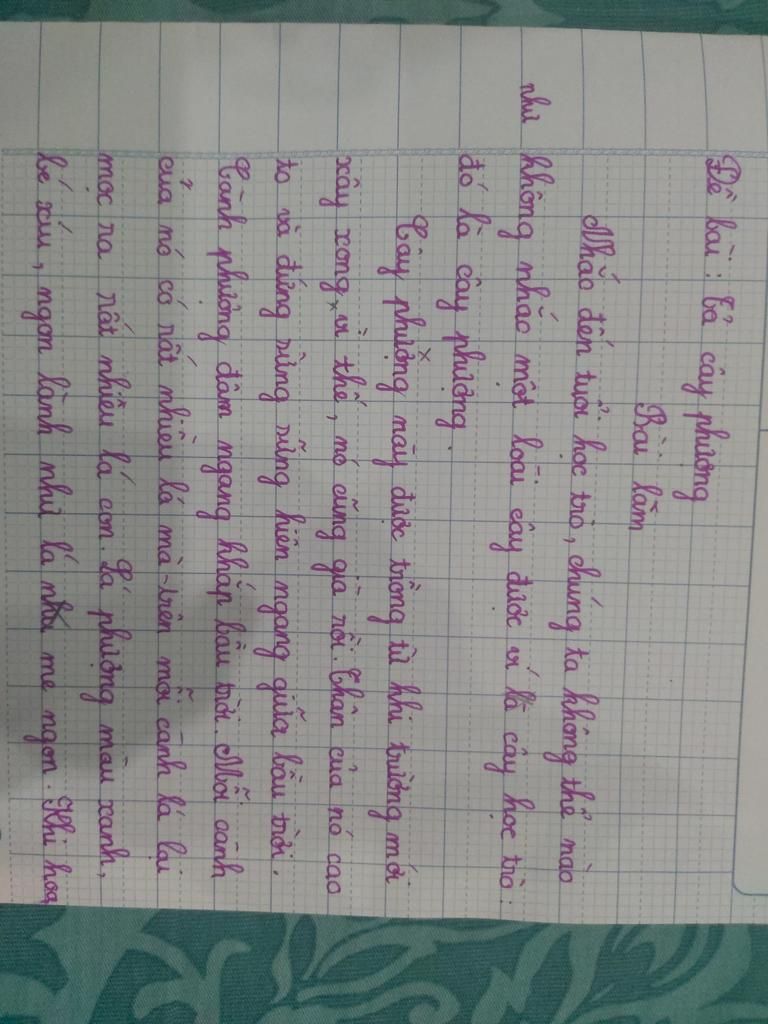 Đề bài: Tả cây phượng
Bài làm
Nhắc đến tuổi học trò, chúng ta không thể nào
như không nhắc một loài cây được ví là cây học trò:
đó là cây phượng.
Cây phượng này được trồng từ khi trường mới
xây xong vì thế, nó cũng già rồi. Thân của nó cao
to và đứng sừng sững hiên ngang giữa bầu trời.
Cành phượng đâm ngang khắp bầu trời. Mỗi cành
của nó có rất nhiều lá mà trên mỗi cành lá lại
mọc ra rất nhiều lá con. Lá phượng màu xanh,
bé xíu, ngon lành như lá me ngon. Khi hoa